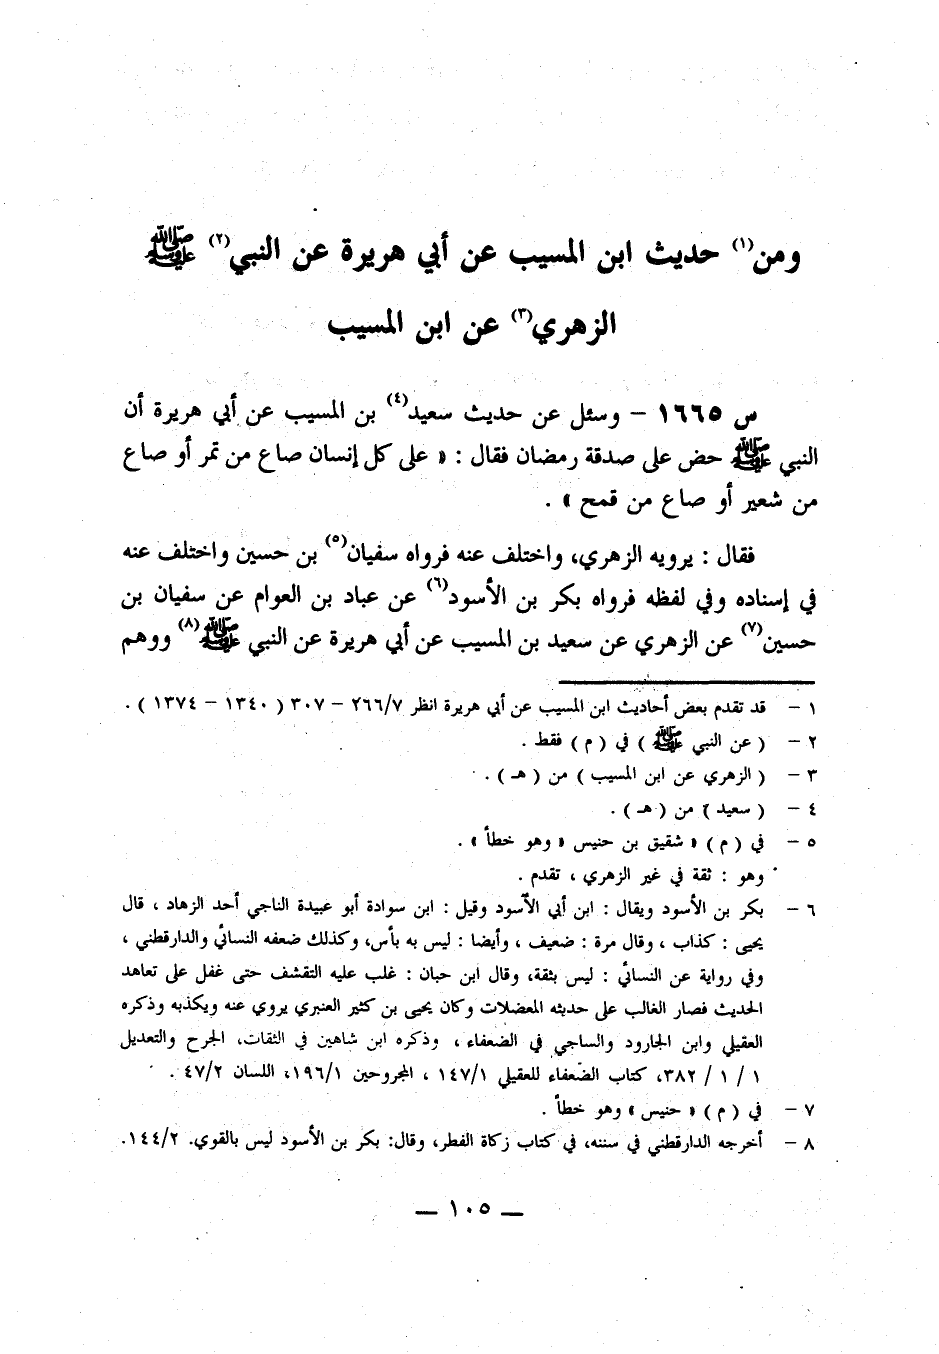 ومن(١) حديث ابن المسيب عن أبي هريرة عن النبي(٢) ﷺ
الزهري(٣) عن ابن المسيب
س ١٦٦٥ – وسئل عن حديث سعيد(٤) بن المسيب عن أبي هريرة أن
النبي ﷺ حض على صدقة رمضان فقال : « على كل إنسان صاع من تمر أو صاع
من شعير أو صاع من قمح » .
فقال : يرويه الزهري، واختلف عنه فرواه سفيان(٥) بن حسين واختلف عنه
في إسناده وفي لفظه فرواه بكر بن الأسود(٦) عن عباد بن العوام عن سفيان بن
حسين(٧) عن الزهري عن سعيد بن المسيب عن أبي هريرة عن النبي ﷺ(٨) ووهم
١ – قد تقدم بعض أحاديث ابن المسيب عن أبي هريرة انظر ٢٦٦/٧ – ٣٠٧ ( ١٣٤٠ – ١٣٧٤ ) .
٢ – ( عن النبي ﷺ ) في ( م ) فقط .
٣ – ( الزهري عن ابن المسيب ) من ( هـ ) .
٤ – ( سعيد ) من ( هـ ) .
٥ – في ( م ) « شقيق بن حنيس « وهو خطأ » .
وهو : ثقة في غير الزهري ، تقدم .
٦ – بكر بن الأسود ويقال : ابن أبي الأسود وقيل : ابن سوادة أبو عبيدة الناجي أحد الزهاد ، قال
يحيى : كذاب ، وقال مرة : ضعيف ، وأيضا : ليس به بأس، وكذلك ضعفه النسائي والدارقطني ،
وفي رواية عن النسائي : ليس بثقة، وقال ابن حبان : غلب عليه التقشف حتى غفل على تعاهد
الحديث فصار الغالب على حديثه المعضلات وكان يحيى بن كثير العنبري يروي عنه ويكذبه وذكره
العقيلي وابن الجارود والساجي في الضعفاء ، وذكره ابن شاهين في الثقات، الجرح والتعديل
١ / ١ / ٣٨٢، كتاب الضعفاء للعقيلي ١٤٧/١ ، المجروحين ١٩٦/١، اللسان ٤٧/٢ .
٧ – في ( م ) « حنيس » وهو خطأ .
٨ – أخرجه الدارقطني في سننه، في كتاب زكاة الفطر، وقال: بكر بن الأسود ليس بالقوي. ١٤٤/٢.
— ١٠٥ —